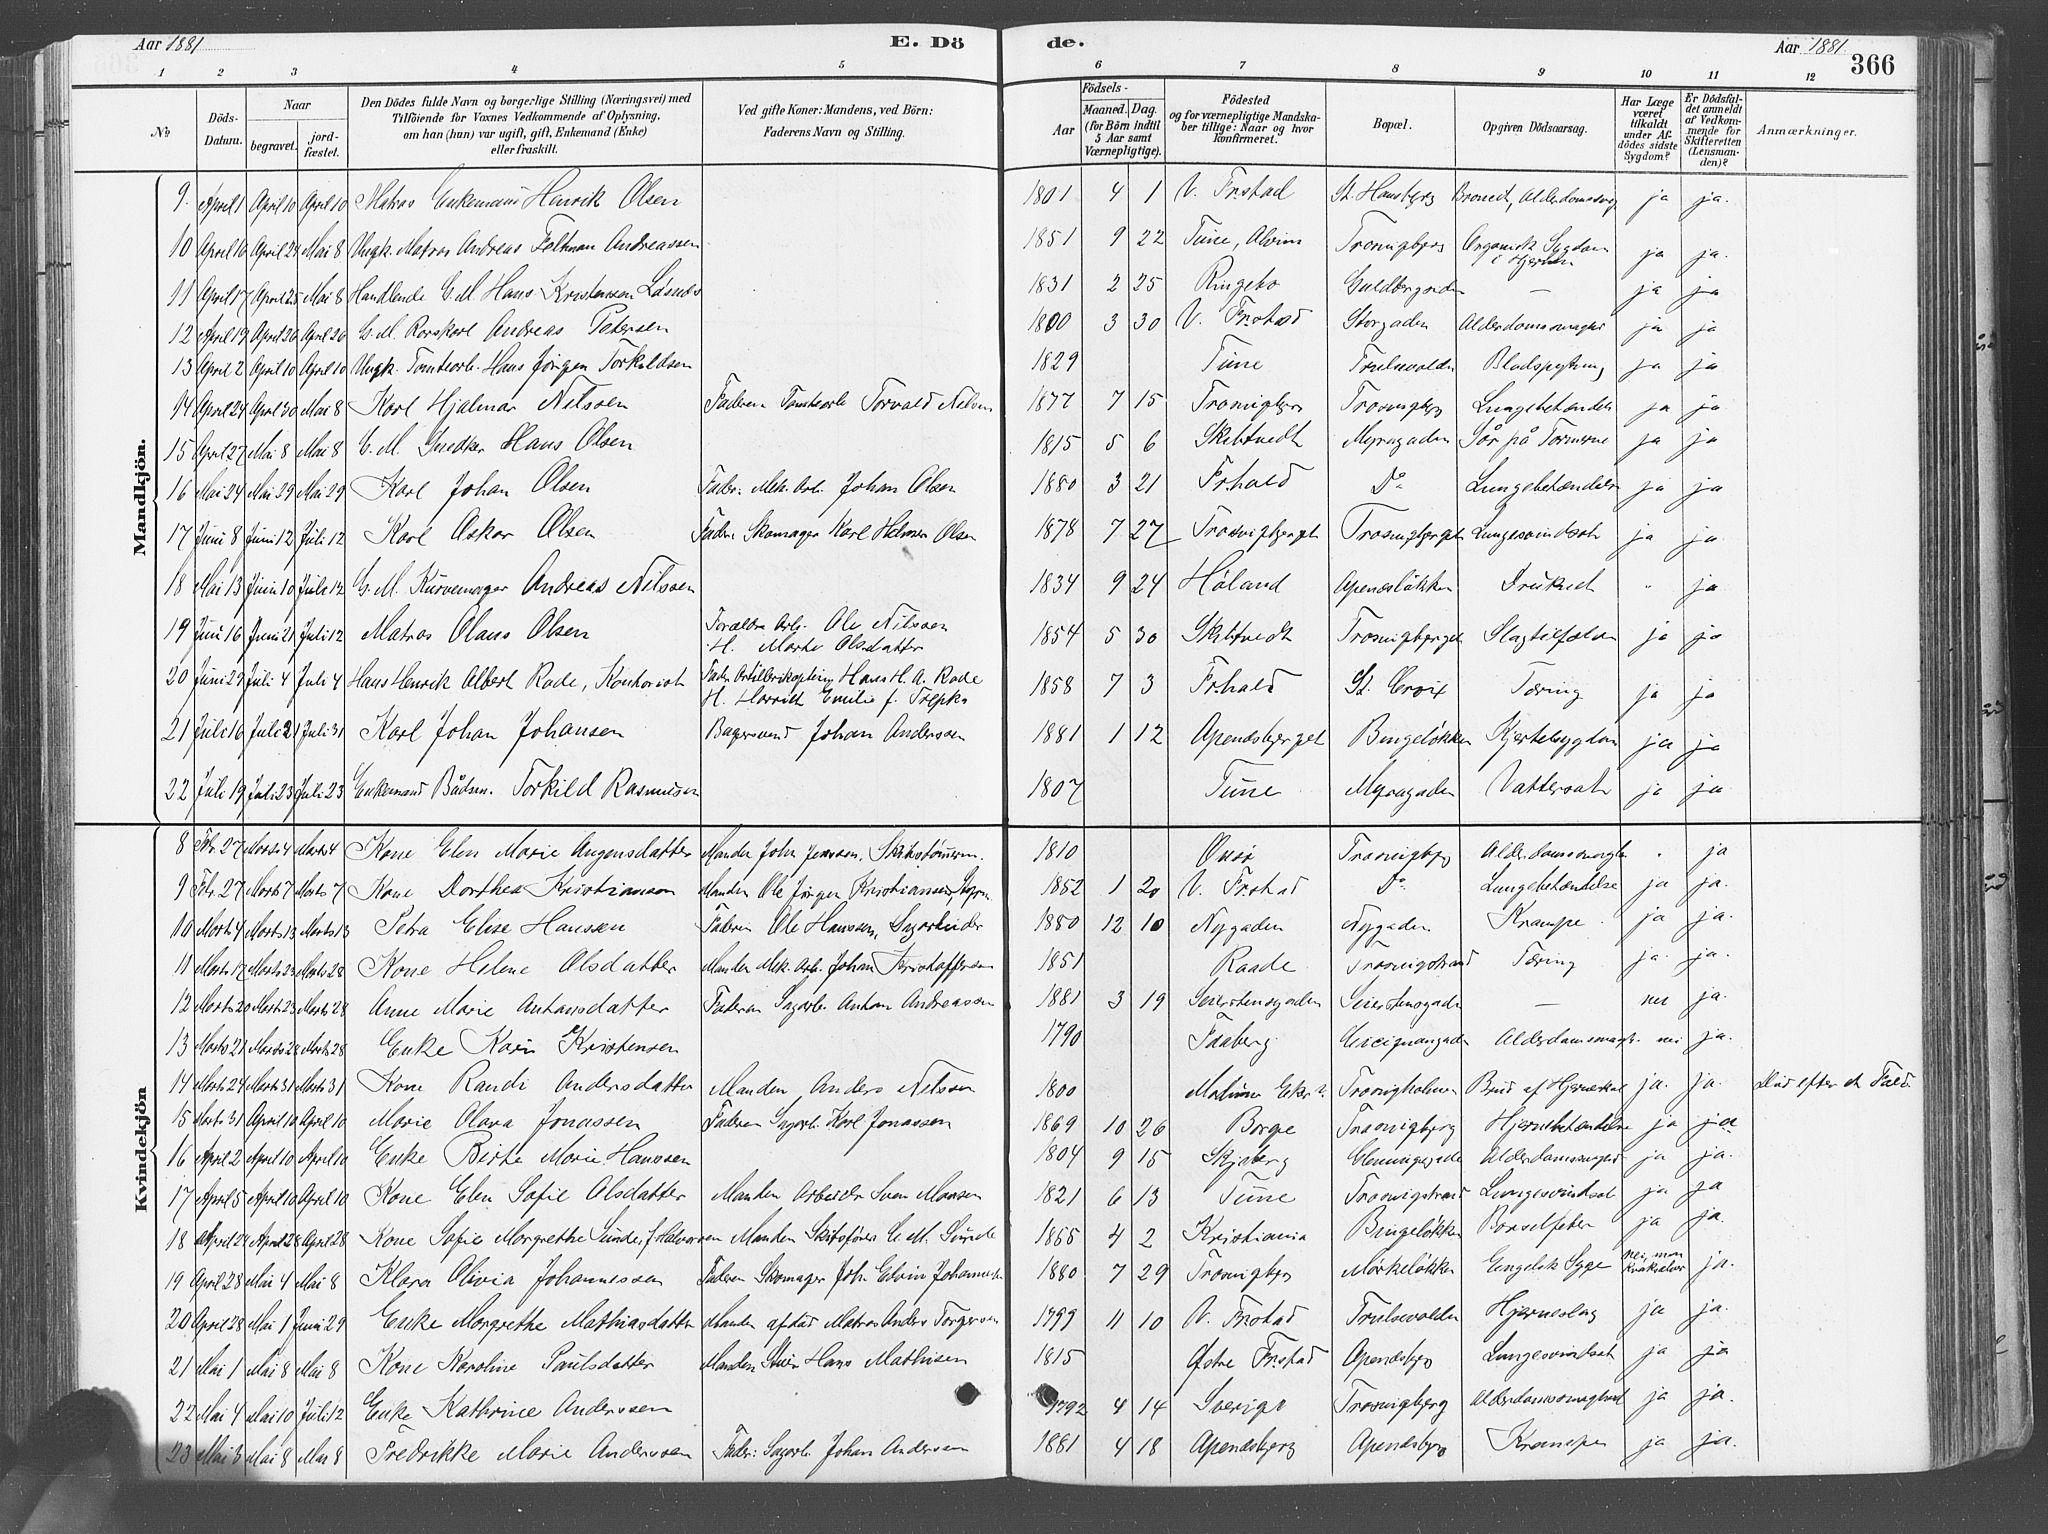 Aar 1881 E. Dö de. Aar 1881 366
1 2 3 4 5 6 7 8 9 10 11 12
No Döds-Datum. Naar begravet. jordfæstet. Den Dödes fulde Navn og borgerlige Stilling (Næringsvei) med Tilföiende for Voxnes Vedkommende af Oplysning, om han (hun) var ugift, gift, Enkemand (Enke) eller fraskilt. Ved gifte Koner: Mandens, ved Börn: Faderens Navn og Stilling. Födsels- Aar Maaned. Dag. (for Börn indtil 5 Aar samt Værnepligtige). Födested og for værnepligtige Mandskaber tillige: Naar og hvor konfirmeret. Bopæl. Opgiven Dödsaarsag. Har Læge været tilkaldt under Afdödes sidste Sygdom? Er Dödsfaldet anmeldt af Vedkommende for Skifteretten (Lensmanden)? Anmærkninger.
Mandkjön.
9. April 1 April 10 April 10 Matros Enkemand Henrik Olsen 1801 4 1 V. Frstad St. Hansbjerg ja ja.
10 April 16 April 24 Mai 8 Ungk. Matros Andreas Feltman Andreassen 1851 9 22 Tune, Alvim Trosvigbjerg Organisk Sygdom i Hjertet ja ja.
11 April 17 April 25 Mai 8 Handlende E. M. Hans Kristensen 1831 2 25 Ringebo — ja ja
12 April 19 April 26 April 26 G. M. Andreas Petersen 1800 3 30 V. Frstad Storgaden ja ja
13 April 2 April 10 April 10 Ungk. Tomtearb. Hans Jörgen Torkildsen 1829 Tune Trulsevolden Blodspytning ja ja
14 April 24 April 30 Mai 8 Karl Hjalmar Nilssen Faderen Tomtearb. Torvald Nilsen 1877 7 15 Trosvigbjerg Trosvigbjerg Lungebetændelse ja ja
15 April 27 Mai 8 Mai 8 G. M. Snedker Hans Olsen 1815 5 6 Skibtvedt Myragaden Sår på Tarmerne ja ja
16 Mai 24 Mai 29 Mai 29 Karl Johan Olsen Fader: Mek. Arb. Johan Olsen 1880 3 21 Frhald Do Lungebetændelse ja ja
17 Juni 8 Juni 12 Juli 12 Karl Oskar Olsen Fader: Skomager Karl Helmer Olsen 1878 7 27 Trosvigbjerget Trosvigbjerget Lungesvindsot ja ja
18 Mai 13 Juni 10 Juli 12 G. M. Kurvemager Andreas Nilssen 1834 9 24 Höland Apenesløkken Druknet " ja
19 Juni 16 Juni 21 Juli 12 Matros Olaus Olsen Forældre Arb. Ole Nilssen
H. Marte Olsdatter 1854 5 30 Skibtvedt Trosvigbjerget Slagtilfælde ja ja
20 Juni 29 Juli 4 Juli 4 Hans Henrik Albert Rode, Kontorist Fader Artillerikaptein Hans H. A. Rode
H. Harriet Emilie f. Trepka 1858 7 3 Frhald St. Croix Tæring ja ja
21 Juli 16 Juli 21 Juli 31 Karl Johan Johansen Bagersvend Johan Anderssen 1881 1 12 Apenesbjerget Bingeløkken Kjertelsygdom ja ja
22 Juli 19 Juli 23 Juli 23 Enkemand Bådsm. Torkild Rasmusen 1807 Tune Myragaden Vattersot ja ja
Kvindekjön
8 Febr. 27 Marts 4 Marts 4 Kone Elen Marie Augensdatter Manden John Jenssen, Skibstømerm. 1810 Onsø Trosvigbjerg " ja
9 Febr. 27 Marts 7 Marts 7 Kone Dorthea Kristiansen Manden Ole Jörgen Kristiansen, 1852 1 20 V. Frstad Do Lungebetændelse ja ja.
10 Marts 4 Marts 13 Marts 13 Petra Elise Hanssen Faderen Ole Hanssen, Sagarbeider 1880 12 10 Nygaden Nygaden Krampe ja ja.
11 Marts 17 Marts 23 Marts 28 Kone Helene Olsdatter Manden Mek. Arb. Johan Kristoffersen 1851 Raade Trosvigstrand Tæring ja. ja.
12 Marts 20 Marts 23 Marts 28 Anne Marie Antonsdatter Faderen Sagarb. Anton Andreassen 1881 3 19 — nei ja.
13 Marts 21 Marts 28 Marts 28 Enke Karin Kristensen 1790 Faaberg nei ja.
14 Marts 24 Marts 31 Marts 31 Kone Randi Andersdatter Manden Anders Nilssen 1800 Trosvigholmen ja. ja. Død efter et Fald.
15 Marts 31 April 10 April 10 Marie Olava Jonassen Faderen Sagarb. Karl Jonassen 1869 10 26 Borge Trosvigbjerg Hjernebetændelse ja ja
16 April 2 April 10 April 10 Enke Birte Marie Hanssen 1804 9 15 Skjeberg ja ja.
17 April 5 April 10 April 10 Kone Elen Sofie Olsdatter Manden Arbeider Sven Monsen 1821 6 13 Tune Trosvigstrand Lungesvindsot ja ja
18 April 24 April 28 April 28 Kone Sofie Margrethe Sunde, f. Halvorsen Manden Skibsfører C. M. Sunde 1855 4 2 Kristiania Bingeløkken Barselfeber ja ja.
19 April 28 Mai 4 Mai 8 Klara Olivia Johannessen Faderen Skomager Joh. Edvin Johannessen 1880 7 29 Trosvigbjerg Mörkeløkken Engelsk Syge nei, men Kvaksalver ja.
20 April 28 Mai 1 Juni 29 Enke Margrethe Mathiasdatter Manden afdød Matros Anders Torgersen 1799 11 10 V. Frstad Trulsevolden Hjerneslag ja ja.
21 Mai 1 Mai 8 Mai 8 Kone Karoline Paulsdatter Manden Hans Mathisen 1815 Østre Frstad Apenesbjerg Lungesvindsot ja ja
22 Mai 4 Mai 10 Juli 12 Enke Kathrine Anderssen 1792 4 14 Sverige Trosvigbjerg ja ja.
23 Mai 3 Mai 8 Mai 8 Fredrikke Marie Anderssen Fader: Sagarb. Johan Anderssen 1881 4 18 Apenesbjerg Apenesbjerg Krampe ja ja.